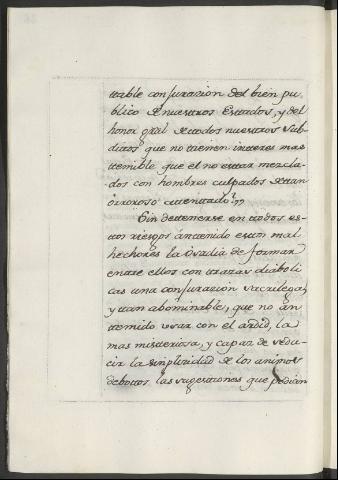 ttable conjurazion del bien pu,
blico de nuestros Esttados, y del
honor gral de ttodos nuestros Sub-
dittos que no ttienen intteres mas
ttemible que el no esttar mezcla-
dos con hombres culpados de ttan
orroroso attenttado?"
Sin dettenerse en ttodos es-
ttos riesgos an ttenido esttos mal
hechores la osadia de formar
enttre ellos con ttrazas diaboli
cas una conjurazion sacrilega,
y ttan abominable, que no an
ttemido usar con el ardid, la
mas mistteriosa, y capaz de sedu-
cir la simplizidad de los animos
debottos las sugesttiones que podian